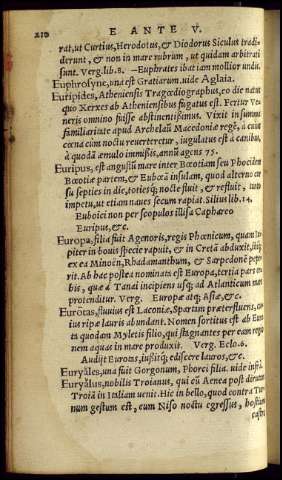 210 E ANTE V.
rat, ut Curtius, Herodotus, & Diodorus Siculus tradi-
derunt, & non in mare rubrum, ut quidam arbitrati
sunt. Verg. lib. 8. —Euphrates ibat iam mollior undis.
Euphrosyne, una est Gratiarum. uide Aglaia.
Euripides, Atheniensis Tragœdiographus, eo die natus
quo Xerxes ab Atheniensibus fugatus est. Fertur Ve-
neris omnino fuisse abstinentissimus. Vixit in summa
familiaritate apud Archelaū Macedoniæ regē, à cuius
cœna cùm noctu reuerteretur, iugulatus est à canibus,
à quodā æmulo immissis, annū agens 75.
Euripus, est angustū mare inter Bœotiam seu Phocidem
Bœotiæ partem, & Eubœā insulam, quod alterno cur
su septies in die, totiesq; nocte fluit, & refluit, tanto
impetu, ut etiam naues secum rapiat. Silius lib. 14.
Euboici non per scopulos illisa Caphareo
Euripus, &c.
Europa, filia fuit Agenoris, regis Phœnicum, quam Iu-
piter in bouis specie rapuit, & in Cretā abduxit, suscepitq;
ex ea Minoën, Rhadamanthum, & Sarpedonē pepe-
rit. Ab hac postea nominata est Europa, tertia pars or-
bis, quæ à Tanai incipiens usq; ad Atlanticum mare
protenditur. Verg. Europæ atq; Asiæ, &c.
Eurōtas, fluuius est Laconiæ, Spartam præterfluens, cu-
ius ripæ lauris abundant. Nomen sortitus est ab Euro-
ta quodam Myletis filio, qui stagnantes per eam regio-
nem aquas in mare produxit. Verg. Eclo. 6.
Audijt Eurotas, iußitq; ediscere lauros, &c.
Euryăle, una fuit Gorgonum, Phorci filia. uide infrà.
Euryălus, nobilis Troianus, qui cū Aenea post dirutam
Troiā in Italiam uenit. Hic in bello, quod contra Tur-
num gestum est, cum Niso noctu egressus, hostium
castra